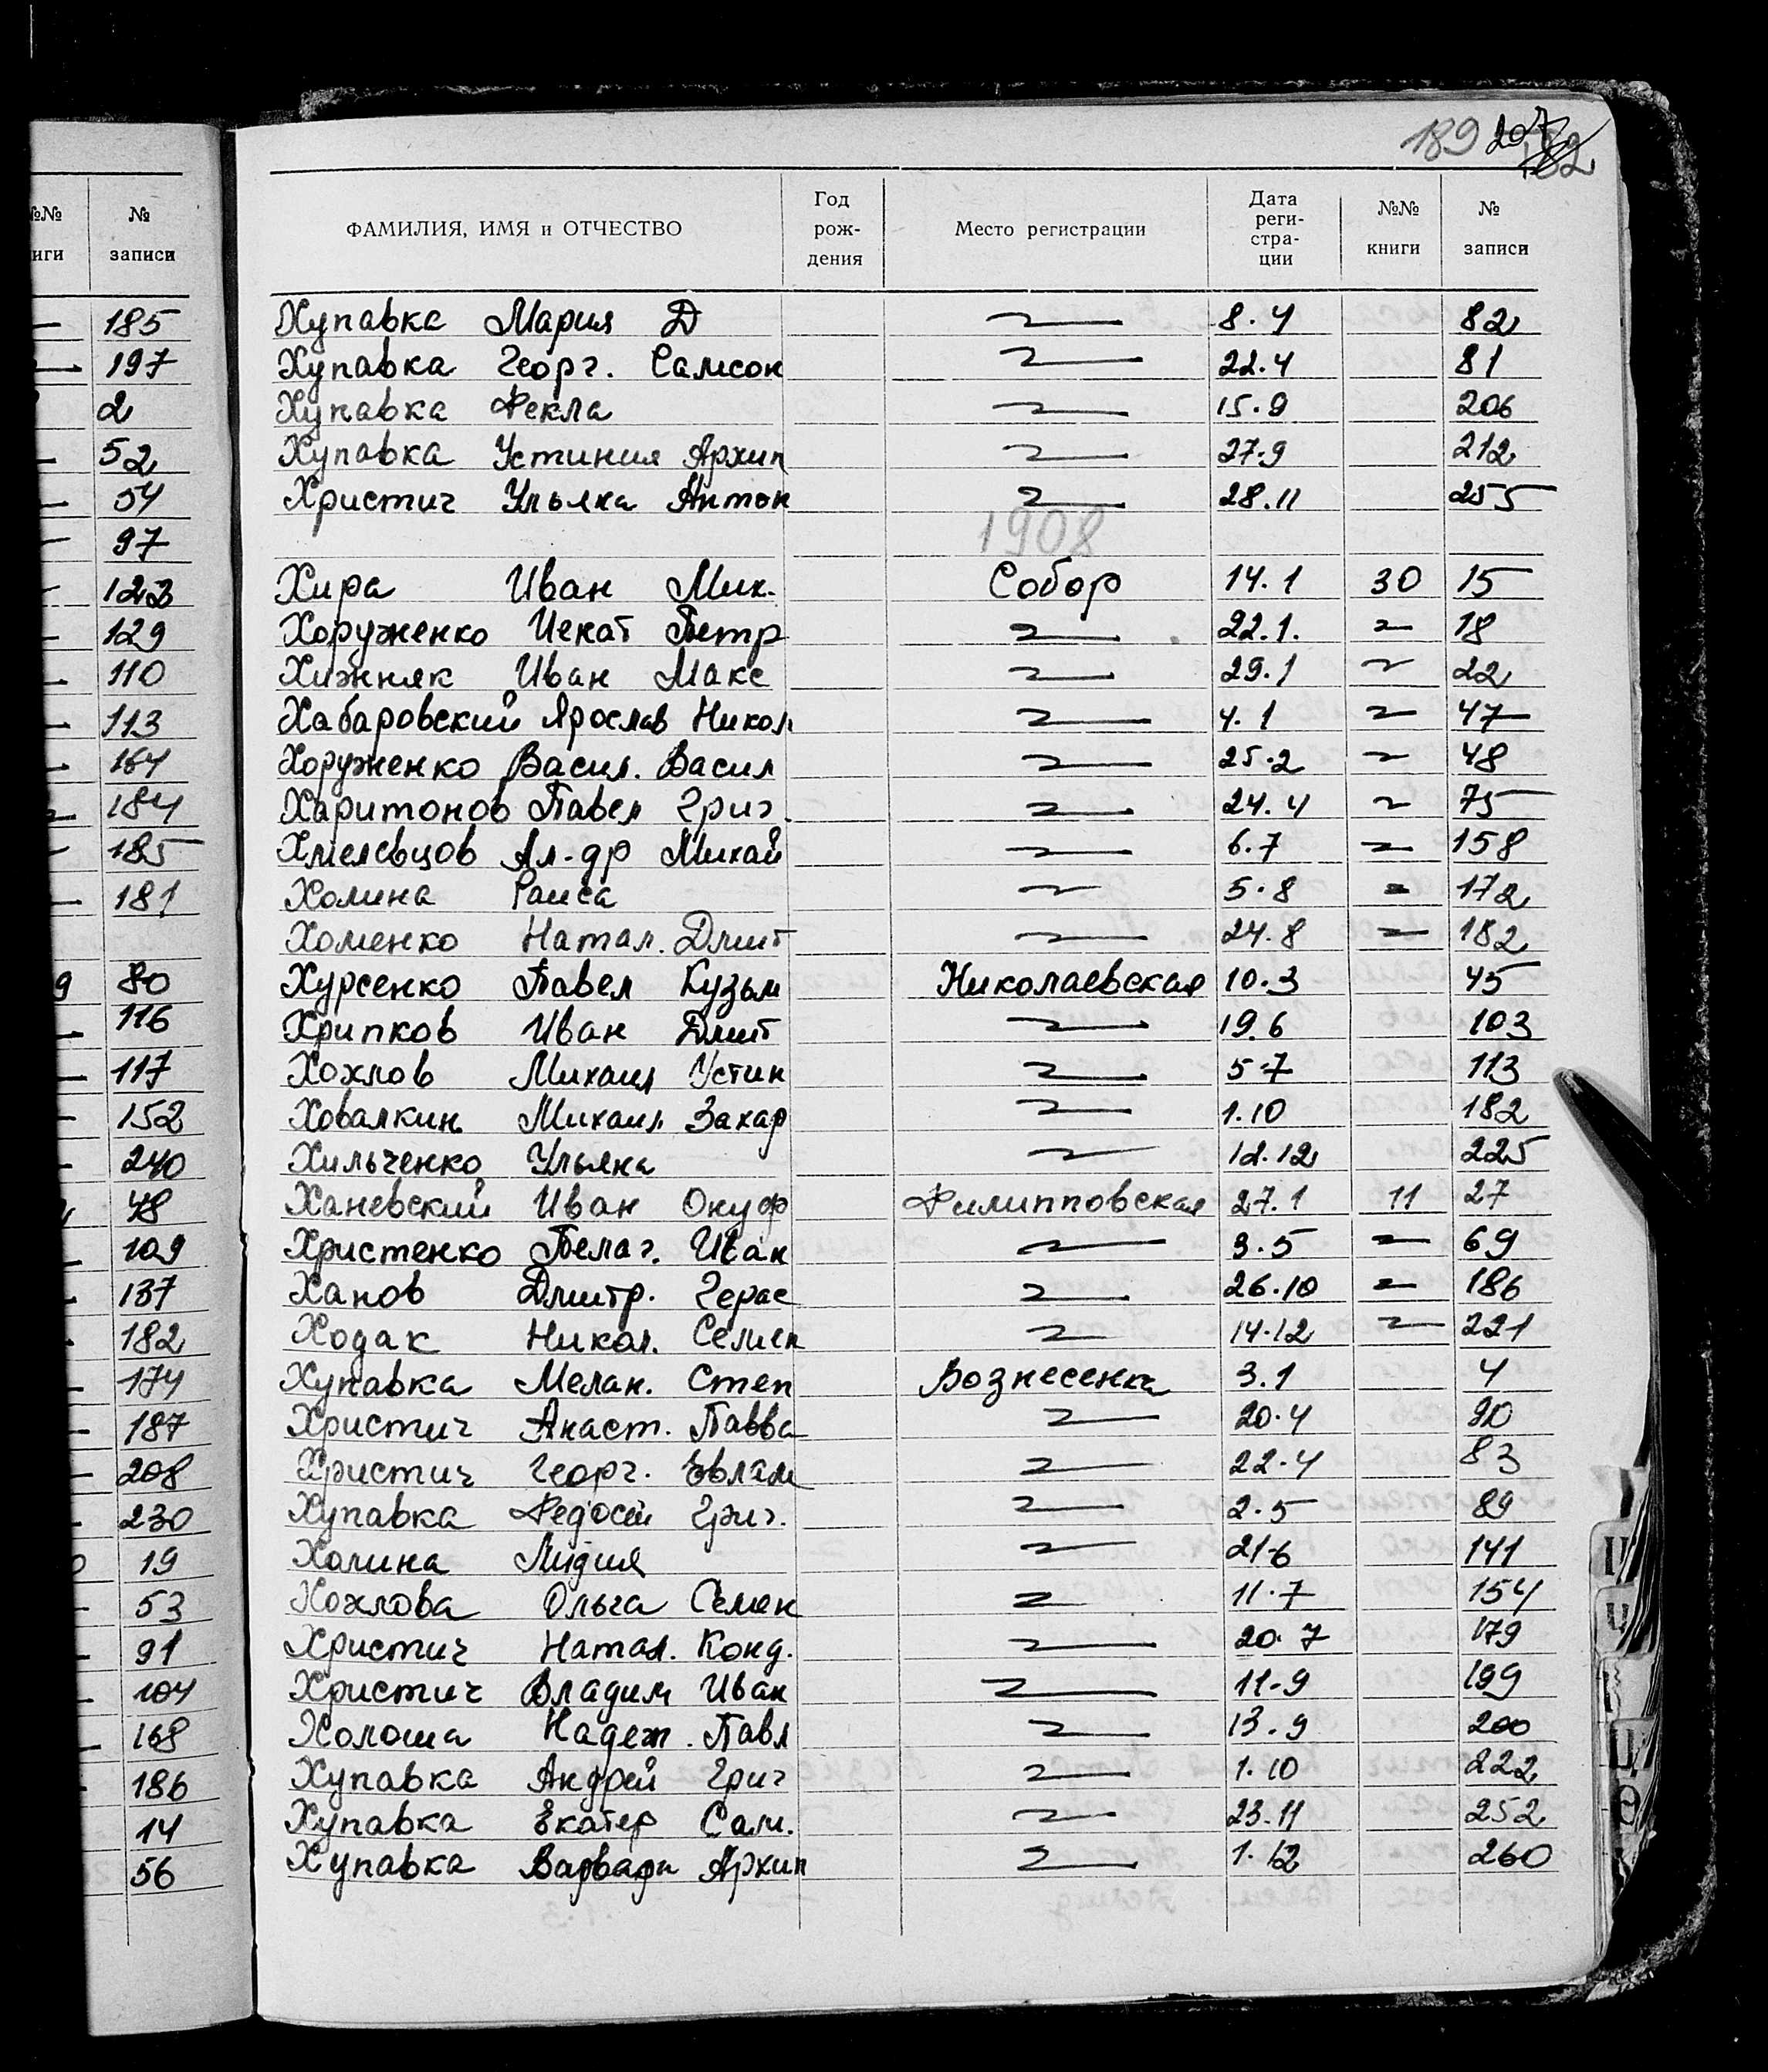 189 207 182
№№ книги
№ записи
185
197
2
52
54
97
123
129
110
113
164
184
185
181
9 80
116
117
152
240
48
109
137
182
174
187
208
230
19
53
91
104
168
186
14
56
ФАМИЛИЯ, ИМЯ и ОТЧЕСТВО Год рождения Место регистрации Дата регистрации №№ книги № записи
Хупавка Мария Д — 8.4 82
Хупавка Георг. Самсон — 22.4 81
Хупавка Фекла — 15.9 206
Хупавка Устиния Архип — 27.9 212
Христич Ульяна Антон — 28.11 255
1908
Хира Иван Мих. Собор 14.1 30 15
Хоруженко Игнат Петр — 22.1. — 18
Хижняк Иван Макс — 29.1 — 22
Хабаровский Ярослав Никол — 4.1 — 47
Хоруженко Васил. Васил — 25.2 — 48
Харитонов Павел Григ. — 24.4 — 75
Хмелевцов Ал-др Михай — 6.7 — 158
Холина Раиса — 5.8 — 172
Хоменко Натал. Дмит — 24.8 — 182
Хурсенко Павел Кузьм Николаевская 10.3 45
Хрипков Иван Дмит — 19.6 103
Хохлов Михаил Устин — 5.7 113
Ховалкин Михаил Захар — 1.10 182
Хильченко Ульяна — 12.12 225
Ханевский Иван Онуф Филипповская 27.1 11 27
Христенко Пелаг. Иван — 3.5 — 69
Ханов Дмитр. Герас — 26.10 — 186
Ходак Никол. Семен — 14.12 — 221
Хупавка Мелан. Степ Вознесенка 3.1 4
Христич Анаст. Павва — 20.4 90
Христич Георг. Евлам — 22.4 83
Хупавка Федосей Григ. — 2.5 89
Холина Лидия — 21.6 141
Хохлова Ольга Семен — 11.7 154
Христич Натал. Конд. — 20.7 179
Христич Владим Иван — 11.9 199
Холоша Надеж. Павл — 13.9 200
Хупавка Андрей Григ — 1.10 222
Хупавка Екатер Сам. — 23.11 252
Хупавка Варвара Архип — 1.12 260
Ц